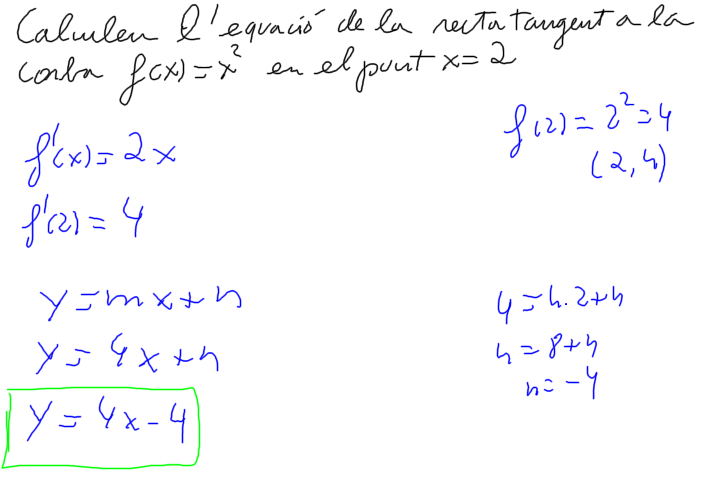 Calculeu l'equació de la recta tangent a la
corba f(x) = x² en el punt x = 2
f'(x) = 2x
f'(2) = 4
f(2) = 2² = 4
(2, 4)
y = mx + n
y = 4x + n
y = 4x - 4
4 = 4·2 + n
4 = 8 + n
n = -4